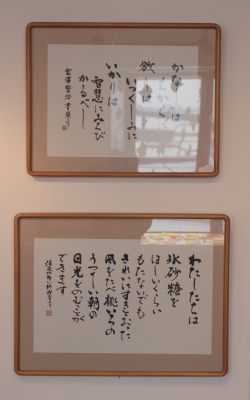 かなしみは
ちからに
欲りは
いつくしみに
いかりは
智慧にみちび
かるべし
宮澤賢治 書簡より
わたしたちは
氷砂糖を
ほしいくらい
もたないでも
きれいにすきとおった
風をたべ桃いろの
うつくしい朝の
日光をのむことが
できます